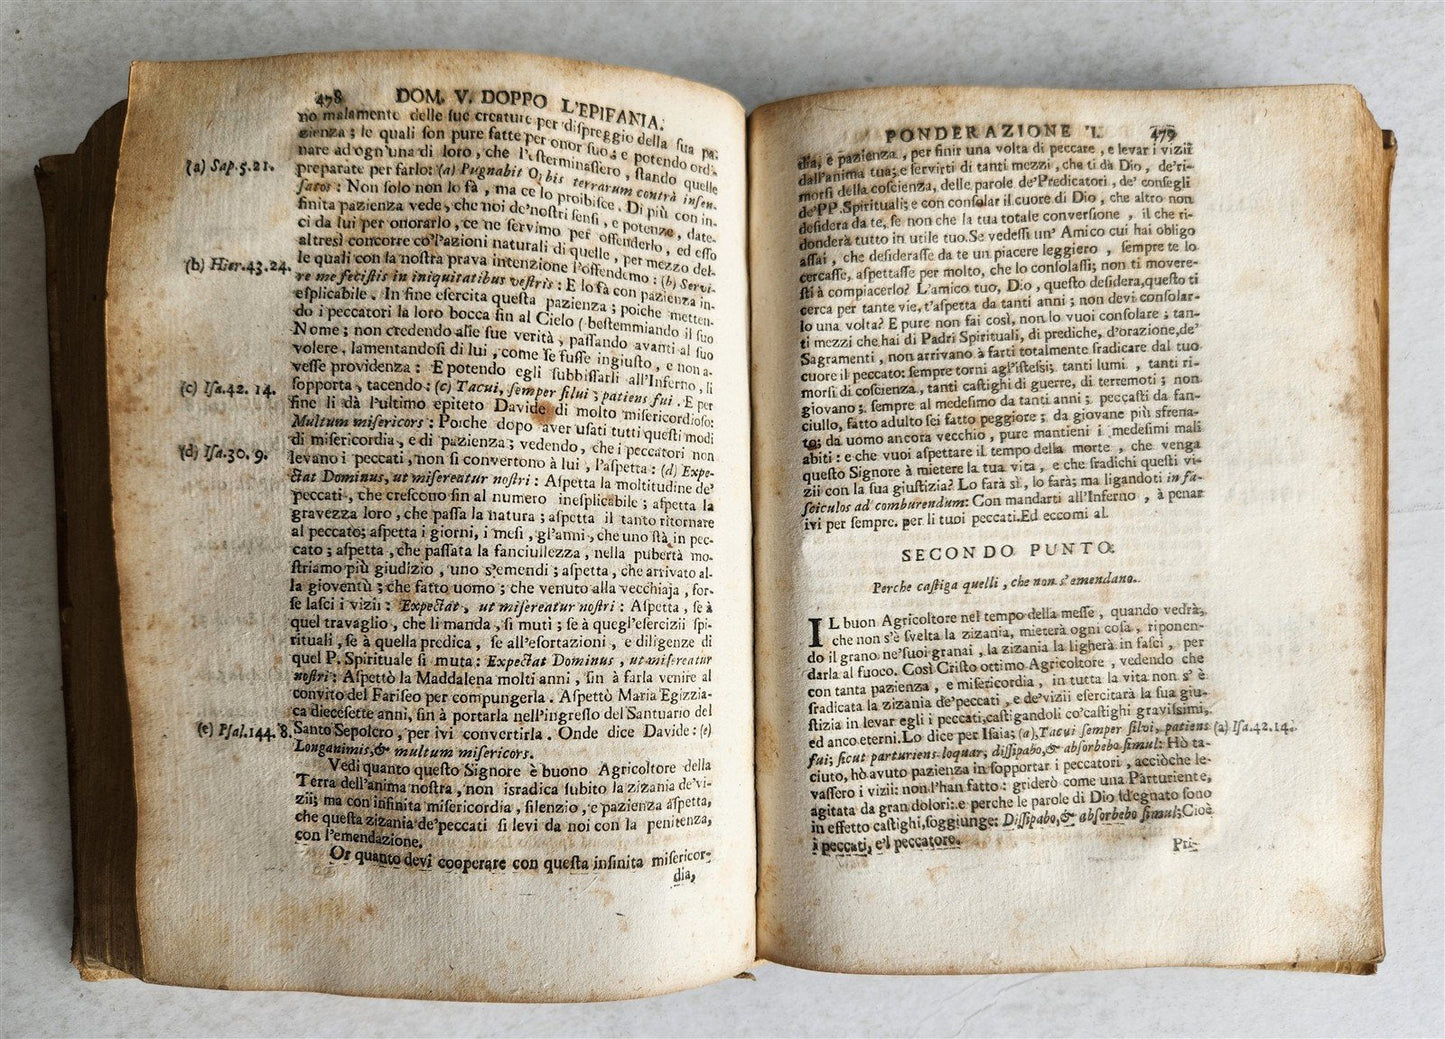 478 DOM. V. DOPPO L'EPIFANIA.
no malamente delle sue creature per dispreggio della sua pa-
zienza; le quali son pure fatte per onor suo; e potendo ordi-
nare ad ogn'una di loro, che l'esterminassero, stando quelle
(a) Sap. 5. 21. preparate per farlo: (a) Pugnabit Orbis terrarum contrà insen-
satos: Non solo non lo fà, ma ce lo proibisce. Di più con in-
finita pazienza vede, che noi de'nostri sensi, e potenze, date-
ci da lui per onorarlo, ce ne servimo per offenderlo, ed esso
altresì concorre co'l'azioni naturali di quelle, per mezzo del-
(b) Hier. 43. 24. le quali con la nostra prava intenzione l'offendemo: (b) Servi-
re me fecistis in iniquitatibus vestris: E lo fà con pazienza in-
esplicabile. In fine esercita questa pazienza; poiche metten-
do i peccatori la loro bocca fin al Cielo (bestemmiando il suo
Nome; non credendo alle sue verità, passando avanti al suo
volere, lamentandosi di lui, come se fusse ingiusto, e non a-
vesse providenza: E potendo egli subbissarli all'Inferno, li
(c) Isa. 42. 14. sopporta, tacendo: (c) Tacui, semper silui; patiens fui. E per
fine li dà l'ultimo epiteto Davide di molto misericordioso:
Multum misericors: Poiche dopo aver usati tutti questi modi
di misericordia, e di pazienza; vedendo, che i peccatori non
(d) Isa. 30. 9. levano i peccati, non si convertono à lui, l'aspetta: (d) Expe-
ctat Dominus, ut misereatur nostri: Aspetta la moltitudine de'
peccati, che crescono fin al numero inesplicabile; aspetta la
gravezza loro, che passa la natura; aspetta il tanto ritornare
al peccato; aspetta i giorni, i mesi, gl'anni, che uno stà in pec-
cato; aspetta, che passata la fanciullezza, nella pubertà mo-
striamo più giudizio, uno s'emendi; aspetta, che arrivato al-
la gioventù; che fatto uomo; che venuto alla vecchiaja, for-
se lasci i vizii: Expectat, ut misereatur nostri: Aspetta, se à
quel travaglio, che li manda, si muti; se à quegl'esercizii spi-
rituali, se à quella predica, se all'esortazioni, e diligenze di
quel P. Spirituale si muta: Expectat Dominus, ut misereatur
nostri: Aspettò la Maddalena molti anni, fin à farla venire al
convito del Fariseo per compungerla. Aspettò Maria Egizzia-
ca diecesette anni, fin à portarla nell'ingresso del Santuario del
(e) Psal. 144. 8. Santo Sepolcro, per ivi convertirla. Onde dice Davide: (e)
Longanimis, & multum misericors.
Vedi quanto questo Signore è buono Agricoltore della
Terra dell'anima nostra, non isradica subito la zizania de'vi-
zii; ma con infinita misericordia, silenzio, e pazienza aspetta,
che questa zizania de'peccati si levi da noi con la penitenza,
con l'emendazione.
Or quanto devi cooperare con questa infinita misericor-
dia,
PONDERAZIONE I. 479
dia, e pazienza, per finir una volta di peccare, e levar i vizii
dall'anima tua; e servirti di tanti mezzi, che ti dà Dio, de'ri-
morsi della coscienza, delle parole de'Predicatori, de' consegli
de'PP. Spirituali; e con consolar il cuore di Dio, che altro non
desidera da te, se non che la tua totale conversione, il che ri-
donderà tutto in utile tuo. Se vedessi un' Amico cui hai obligo
assai, che desiderasse da te un piacere leggiero, sempre te lo
cercasse, aspettasse per molto, che lo consolassi; non ti movere-
sti à compiacerlo? L'amico tuo, Dio, questo desidera, questo ti
cerca per tante vie, t'aspetta da tanti anni; non devi consolar-
lo una volta? E pure non fai così, non lo vuoi consolare; tan-
ti mezzi che hai di Padri Spirituali, di prediche, d'orazione, de'
Sagramenti, non arrivano à farti totalmente sradicare dal tuo
cuore il peccato: sempre torni agl'istessi; tanti lumi, tanti ri-
morsi di coscienza, tanti castighi di guerre, di terremoti; non
giovano; sempre al medesimo da tanti anni; peccasti da fan-
ciullo, fatto adulto sei fatto peggiore; da giovane più sfrena-
to; da uomo ancora vecchio, pure mantieni i medesimi mali
abiti: e che vuoi aspettare il tempo della morte, che venga
questo Signore à mietere la tua vita, e che sradichi questi vi-
zii con la sua giustizia? Lo farà sì, lo farà; ma ligandoti in fa-
sciculos ad comburendum: Con mandarti all'Inferno, à penar
ivi per sempre, per li tuoi peccati. Ed eccomi al
SECONDO PUNTO.
Perche castiga quelli, che non s'emendano.
IL buon Agricoltore nel tempo della messe, quando vedrà,
che non s'è svelta la zizania, mieterà ogni cosa, riponen-
do il grano ne'suoi granai, la zizania la ligherà in fasci, per
darla al fuoco. Così Cristo ottimo Agricoltore, vedendo che
con tanta pazienza, e misericordia, in tutta la vita non s' è
sradicata la zizania de'peccati, e de'vizii esercitarà la sua giu-
stizia in levar egli i peccati, castigandoli co'castighi gravissimi,
ed anco eterni. Lo dice per Isaia; (a) Tacui semper silui, patiens (a) Isa. 42. 14.
fui; sicut parturiens loquar; dissipabo, & absorbebo simul: Hò ta-
ciuto, hò avuto pazienza in sopportar i peccatori, acciòche le-
vassero i vizii: non l'han fatto: griderò come una Parturiente,
agitata da gran dolori: e perche le parole di Dio sdegnato sono
in effetto castighi, soggiunge: Dissipabo, & absorbebo simul; Cioè
i peccati, e'l peccatore.
Pri-